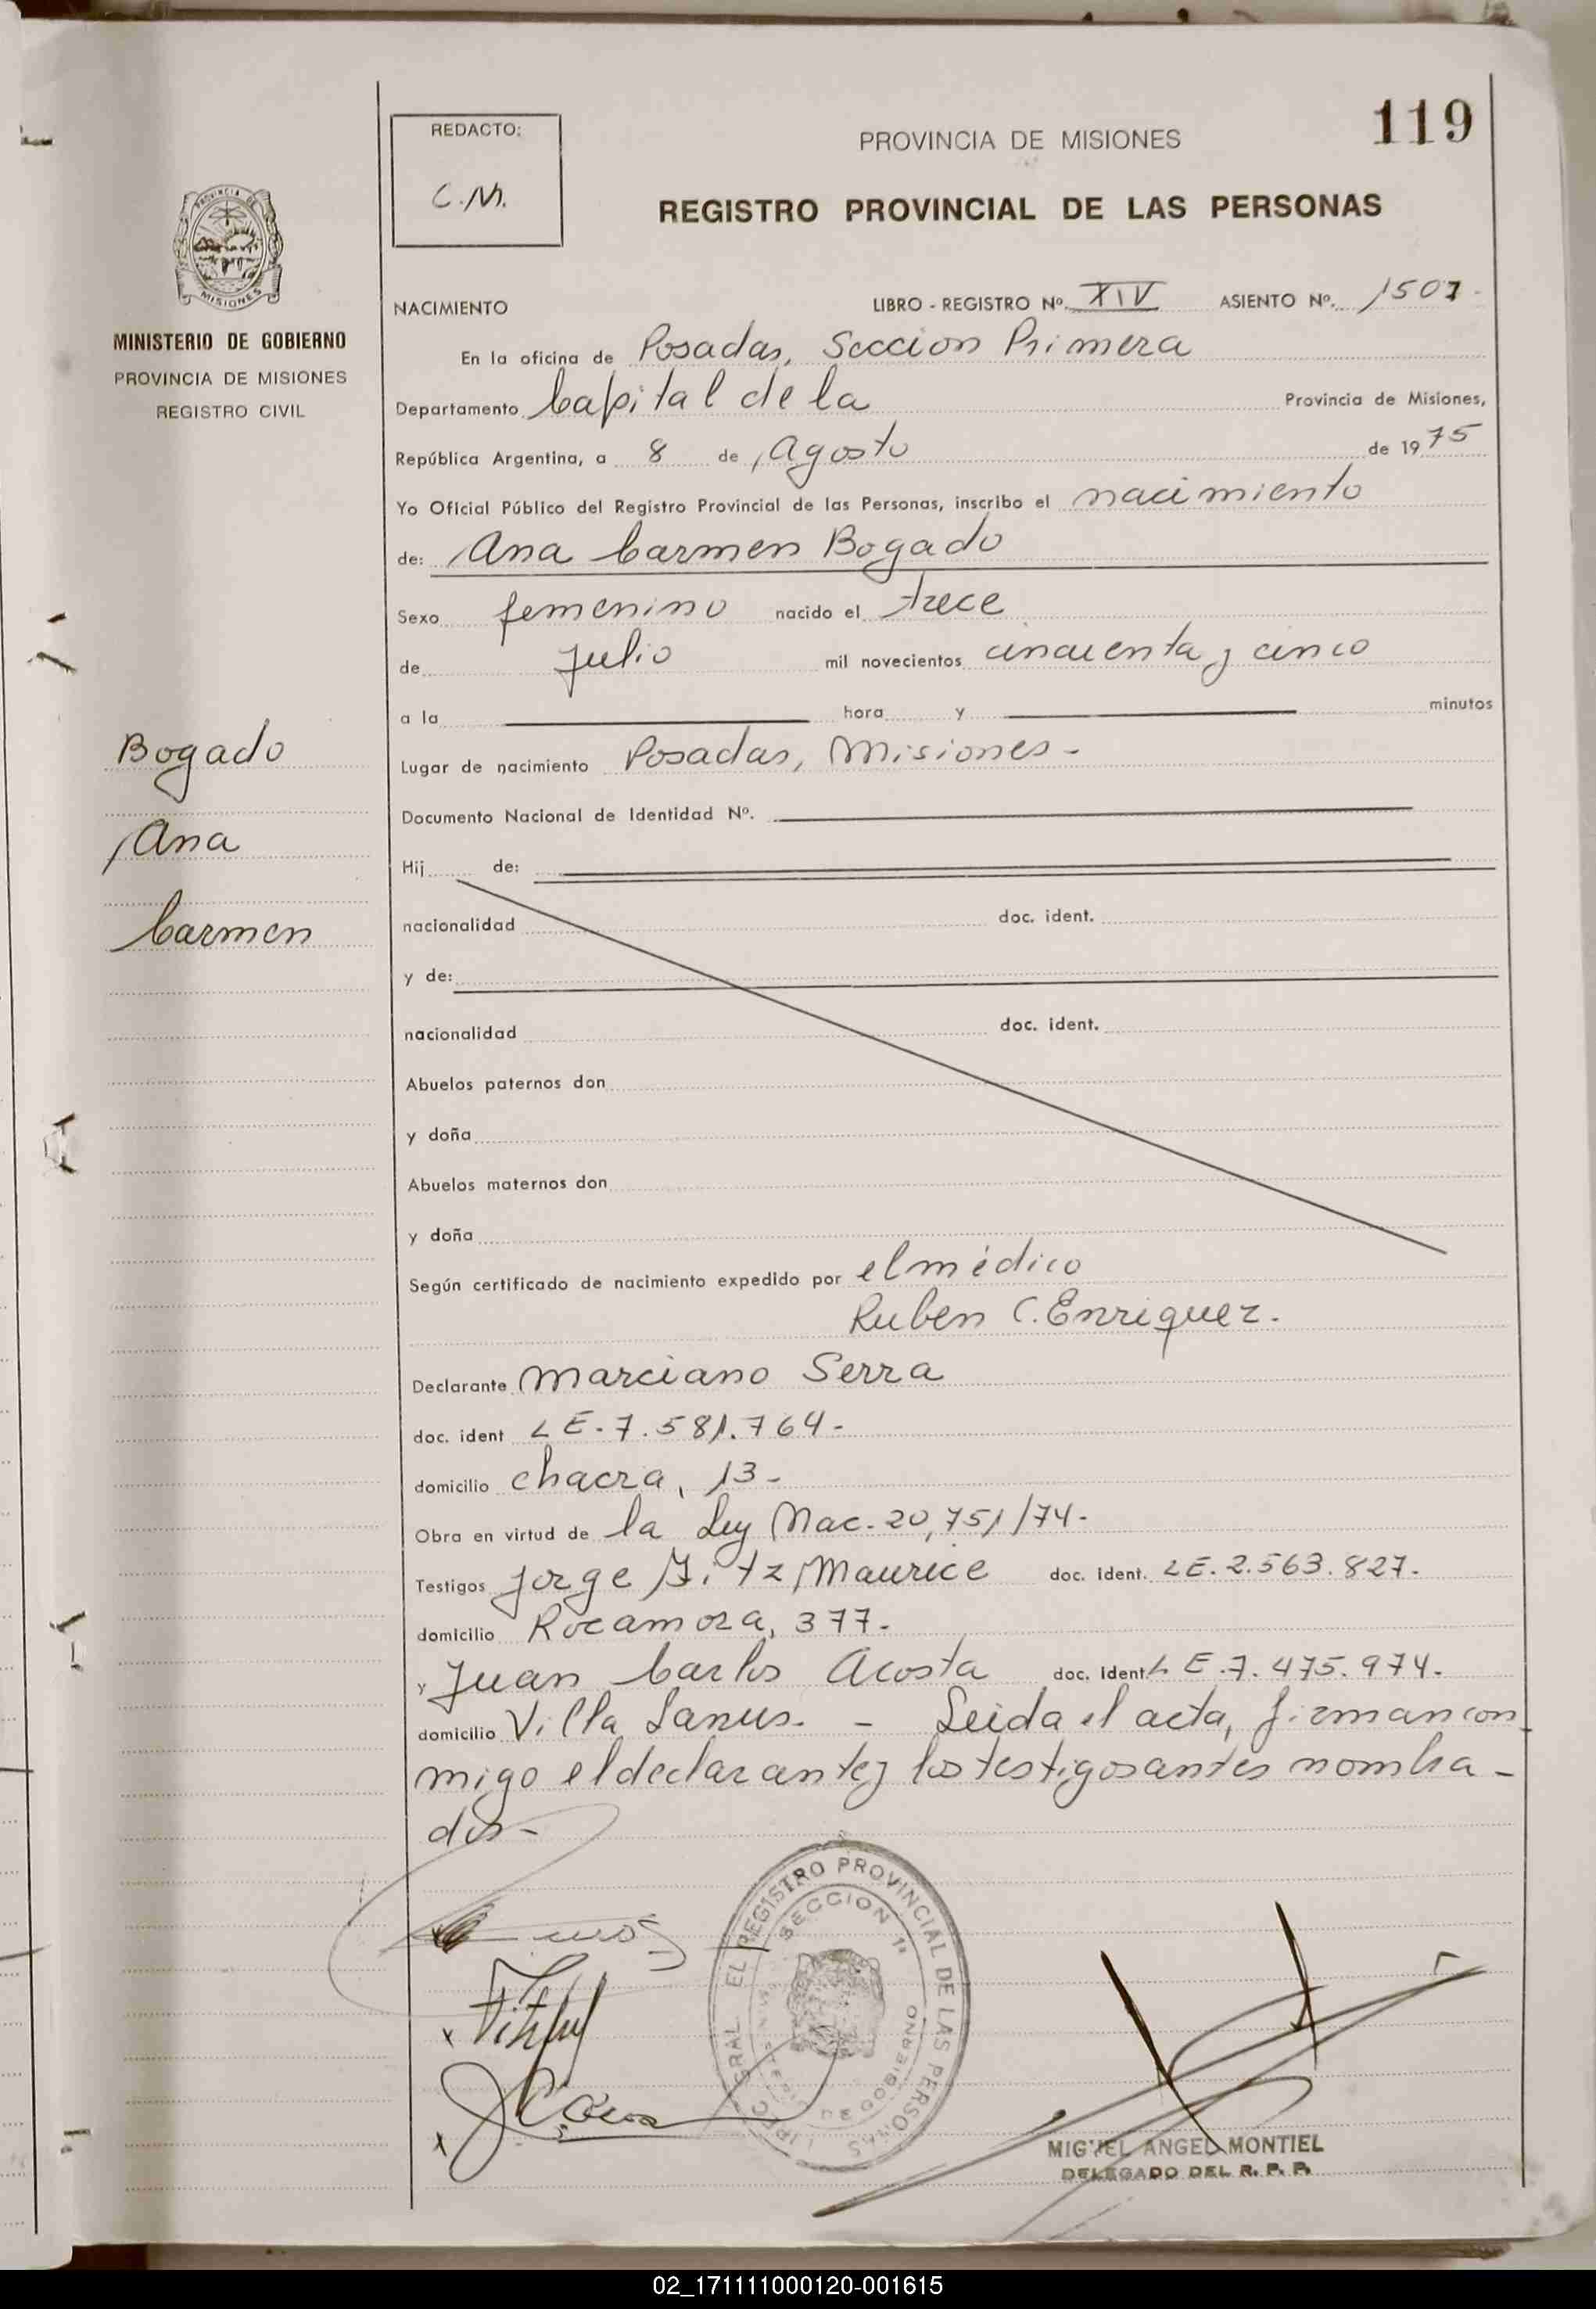 119
REDACTO:
C.M.
PROVINCIA DE MISIONES
REGISTRO PROVINCIAL DE LAS PERSONAS
MISIONES
MINISTERIO DE GOBIERNO
PROVINCIA DE MISIONES
REGISTRO CIVIL
NACIMIENTO LIBRO - REGISTRO Nº. XIV ASIENTO Nº. 1507-
En la oficina de Posadas, Seccion Primera
Departamento Capital de la Provincia de Misiones,
República Argentina, a 8 de Agosto de 1975
Yo Oficial Público del Registro Provincial de las Personas, inscribo el nacimiento
de: Ana Carmen Bogado
Sexo femenino nacido el trece
de Julio mil novecientos cincuenta y cinco
a la hora y minutos
Bogado
Ana
Carmen
Lugar de nacimiento Posadas, Misiones -
Documento Nacional de Identidad Nº.
Hij de:
nacionalidad doc. ident.
y de:
nacionalidad doc. ident.
Abuelos paternos don
y doña
Abuelos maternos don
y doña
Según certificado de nacimiento expedido por el médico
Ruben C. Enriquez.
Declarante Marciano Serra
doc. ident LE-7.581.764-
domicilio chacra, 13-
Obra en virtud de la Ley Nac. 20,751/74-
Testigos Jorge Fitz Maurice doc. ident. LE. 2.563.827.
domicilio Rocamora, 377-
y Juan Carlos Acosta doc. ident LE.7.475.974-
domicilio Villa Lanus. - Leida el acta, firman con
migo el declarante y los testigos antes nombra-
dos-
REGISTRO PROVINCIAL DE LAS PERSONAS
SECCION 1ª
DE GOBIERNO
MIGUEL ANGEL MONTIEL
DELEGADO DEL R. P. P.
02_171111000120-001615